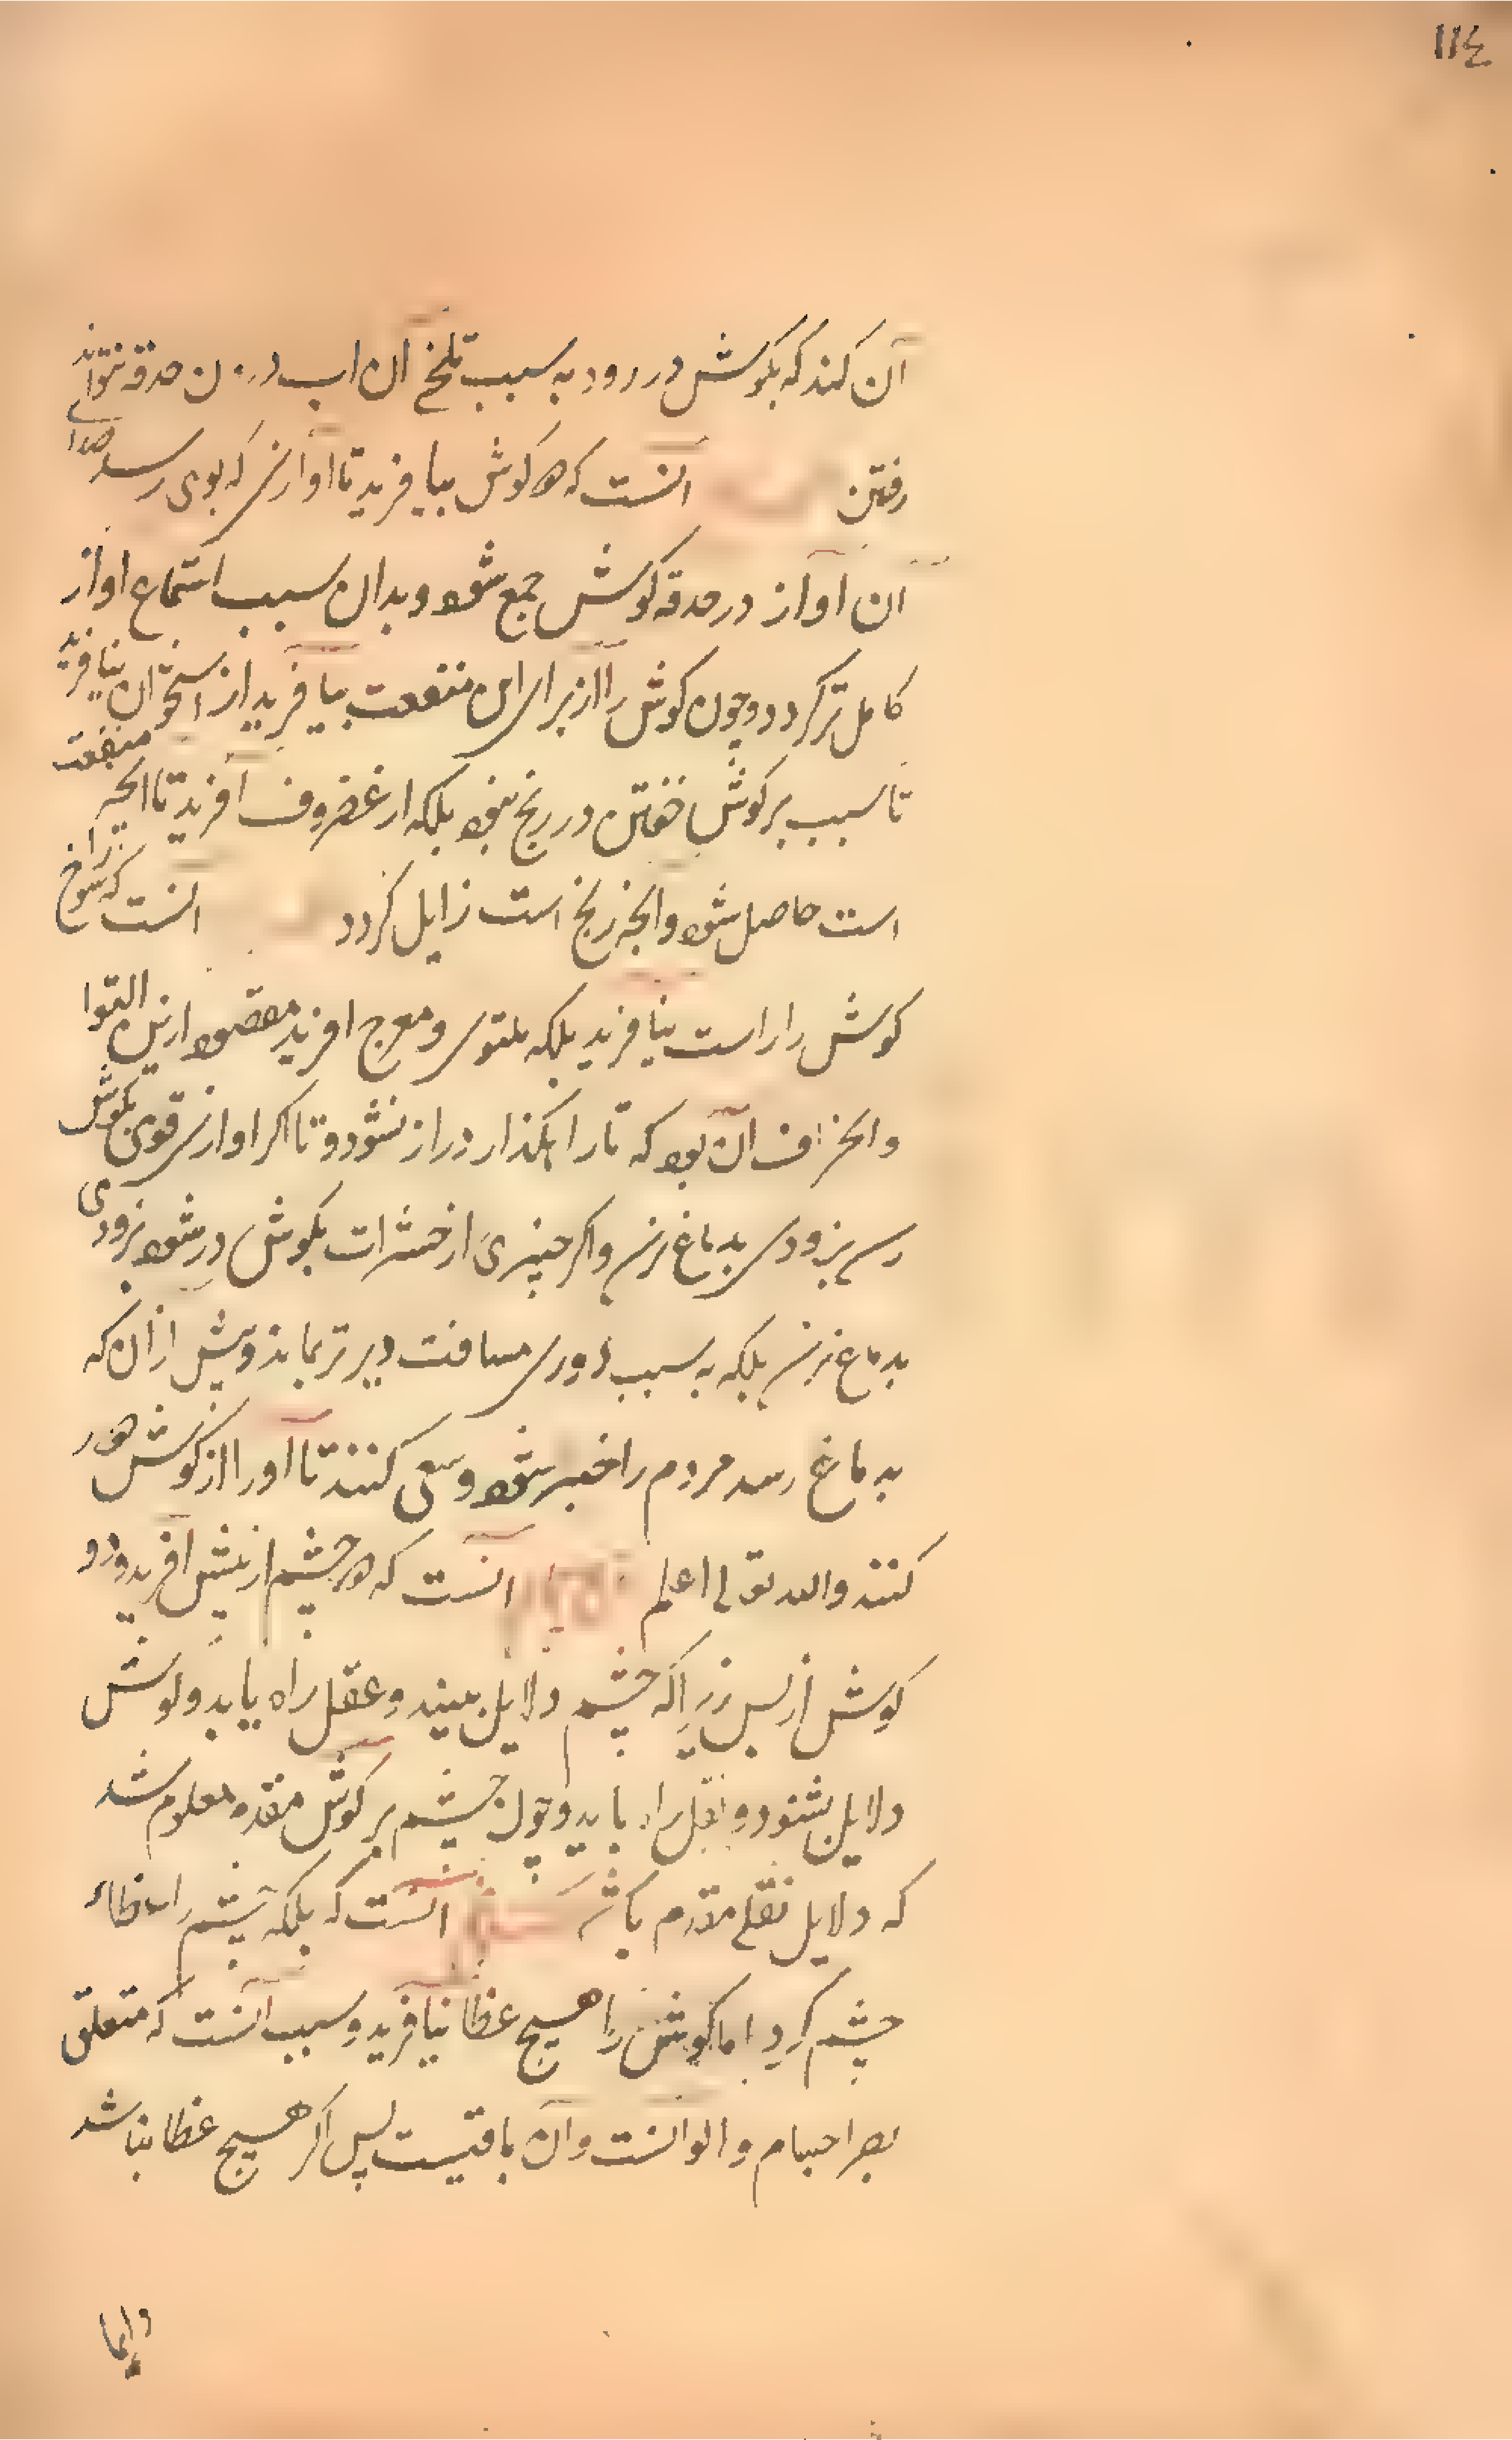 ١١٤
آن کند که بکوش در رود به سبب تلخی آن اب درون حدقه نتواند
رفتن انست که هر کوش بیافرید تا اوازی که بوی رسد صدای
آن آواز در حدقه کوش جمع شود و بدان سبب استماع اواز
کامل تر کردد و چون کوش را از برای این منفعت بیافرید از استخوان نیافرید
تا سبب بر کوش خفتن در رنج نبود بلکه از غضروف آفرید تا انچه منفعت
است حاصل شود و انچه رنج است زایل کردد انست که سوراخ
کوش را راست نیافرید بلکه ملتوی و معوج افرید مقصود ازین التوا
وانحراف آن بود که تا راهکذار دراز نشود و تا اکر اوازی قوی بکوش
رسد بزودی بدماغ نرسد واکر چیزی از حشرات بکوش در شود بزودی
بدماغ نرسد بلکه به سبب دوری مسافت دیرتر بماند و پیش از آن که
بدماغ رسد مردم را خبر شود و سعی کنند تا آورا از کوش دور
کنند والله تعالی اعلم آنست که هر چشم از پیش افرید و دو
کوش از پس زیرا که چشم دلایل بیند و عقل راه یابد و کوش
دلایل بشنود و راه یابد و چون چشم بر کوش مقدم معلوم شد
که دلایل نقلی مقدم باشد آنست که بلکه چشم را
چشم کرد اما کوش را هیچ غطا نیافرید و سبب آنست که متعلق
بصر اجسام و الوانست و آن باقیست پس اکر هیچ غطا نباشد
دایما